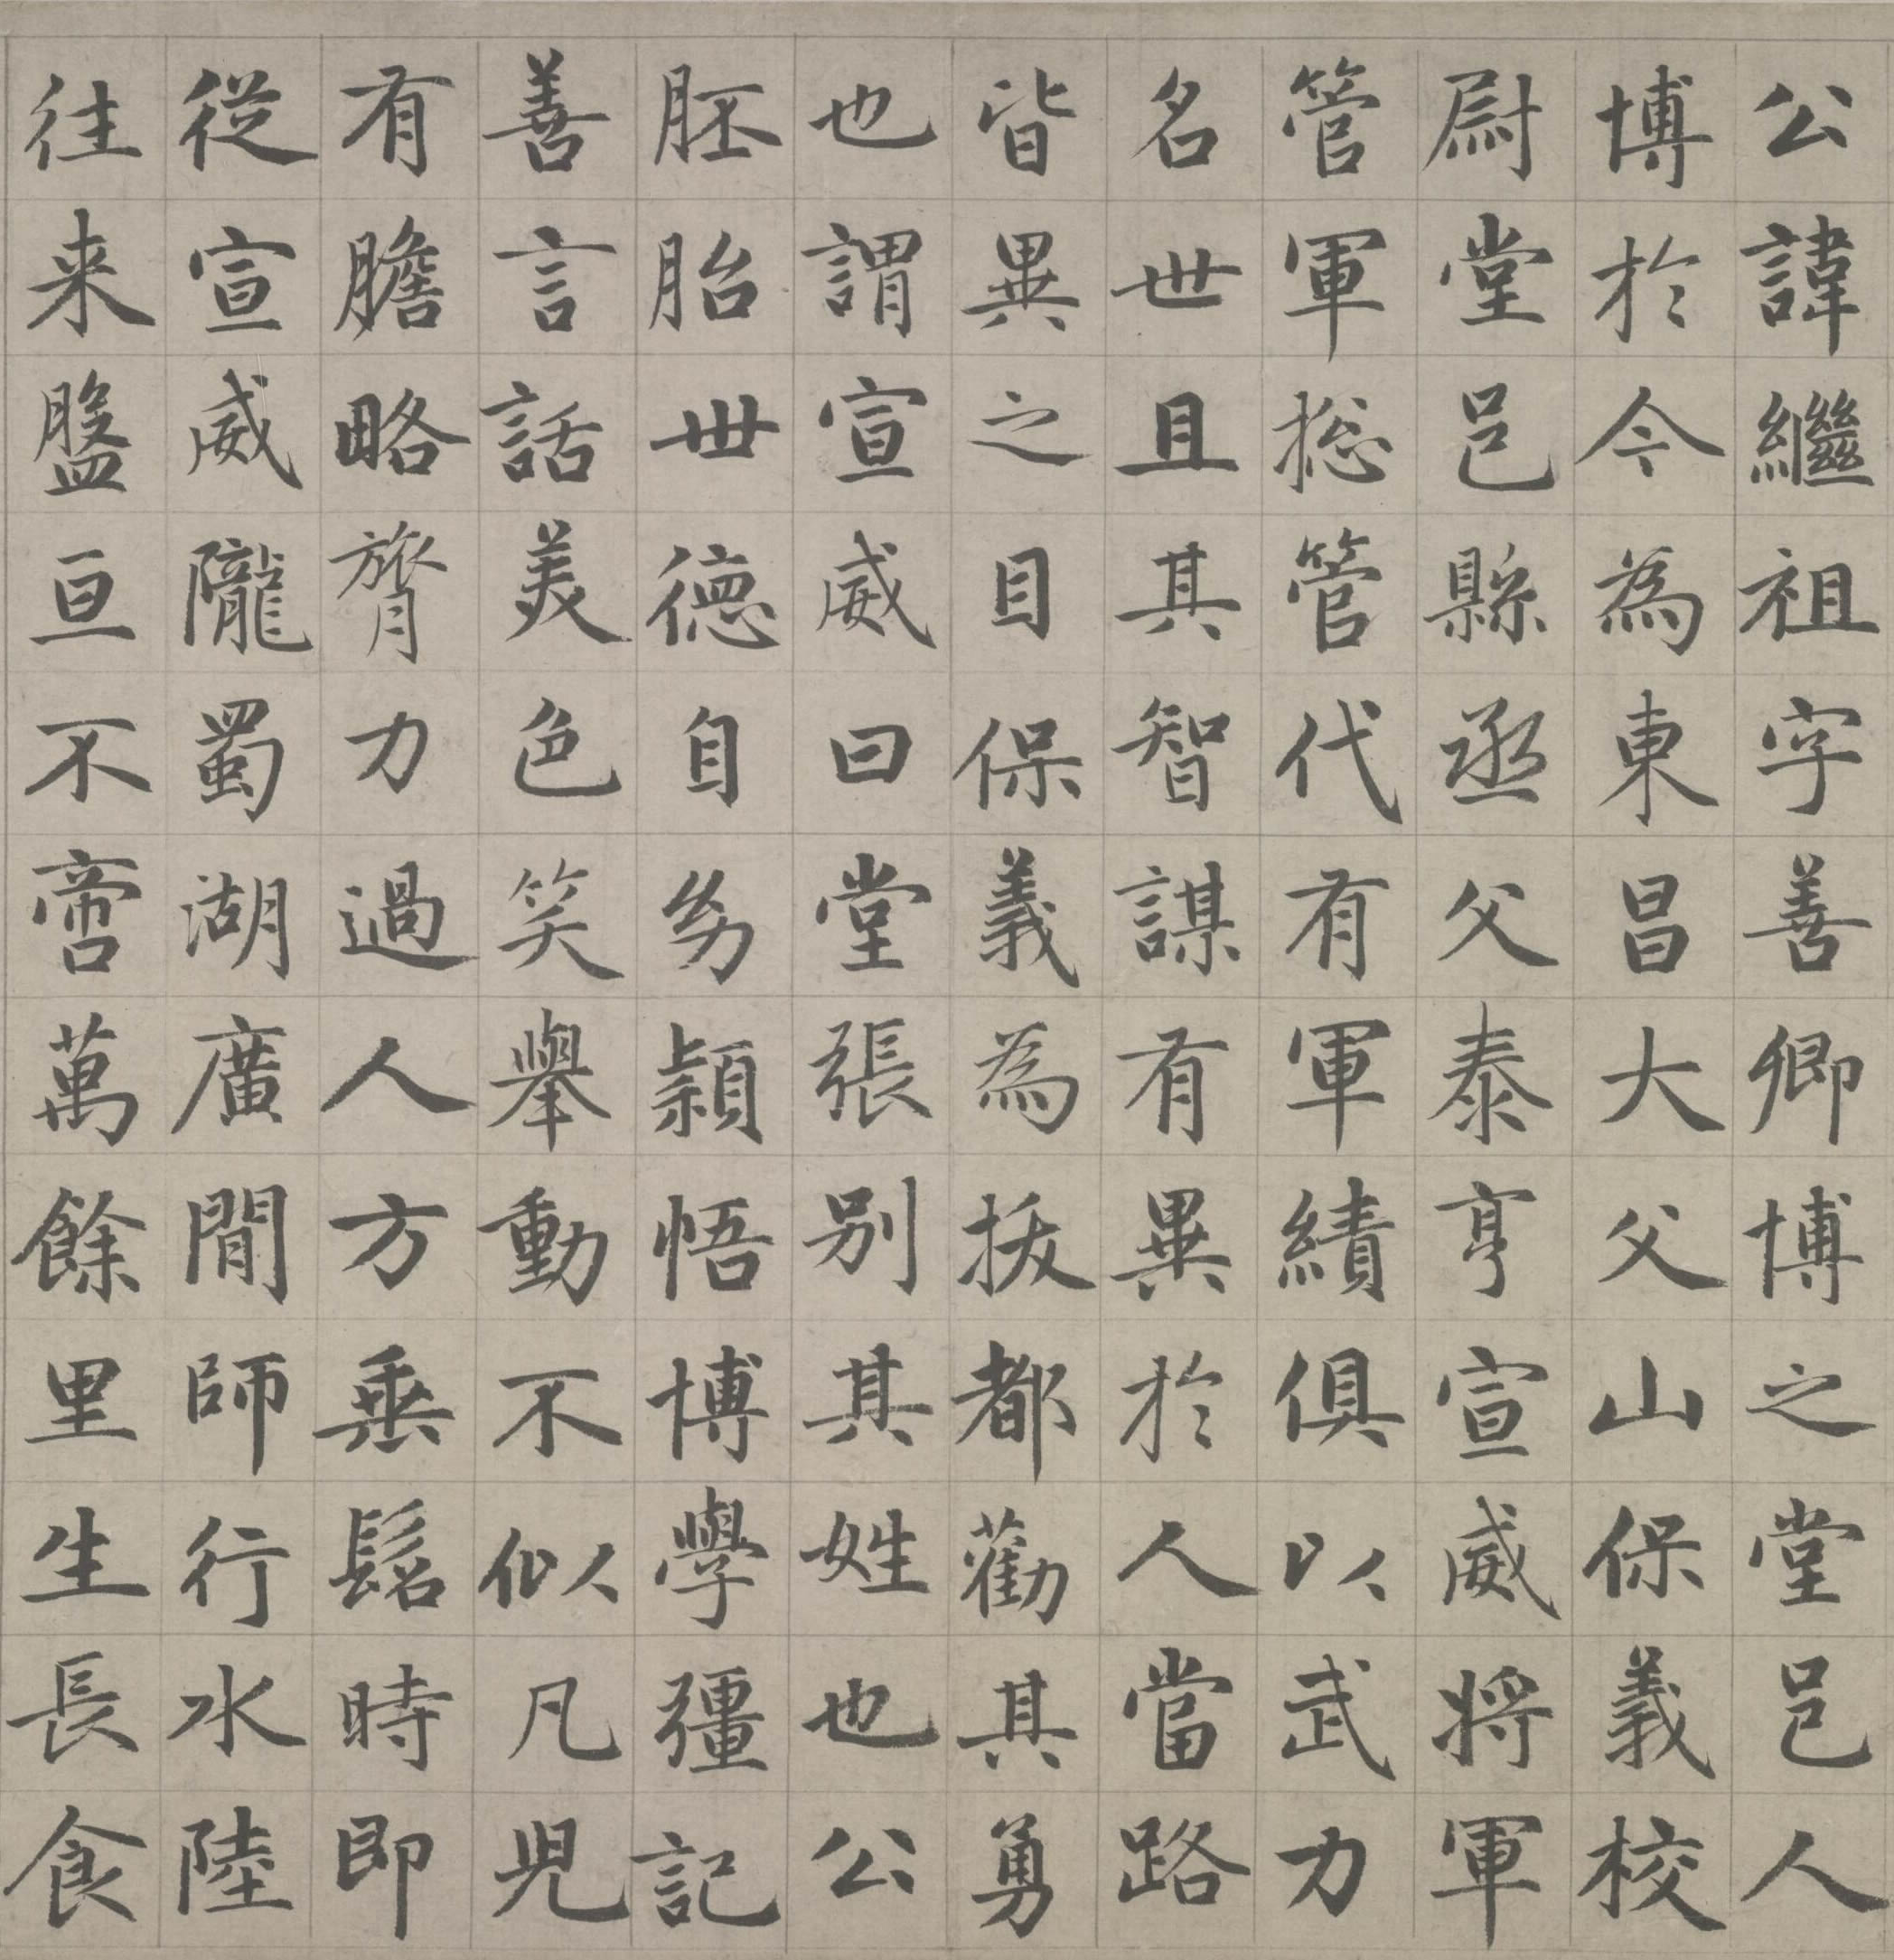 公諱繼祖字善卿博之堂邑人
博於今為東昌大父山保義校
尉堂邑縣丞父泰亨宣威將軍
管軍揔管代有軍績俱以武力
名世且其智謀有異於人當路
皆異之目保義為拔都勸其勇
也謂宣威曰堂張別其姓也公
胚胎世德自幼穎悟博學彊記
善言話美色笑舉動不似凡兒
有膽略膂力過人方垂髫時即
從宣威隴蜀湖廣間師行水陸
往来盤亘不啻萬餘里生長食